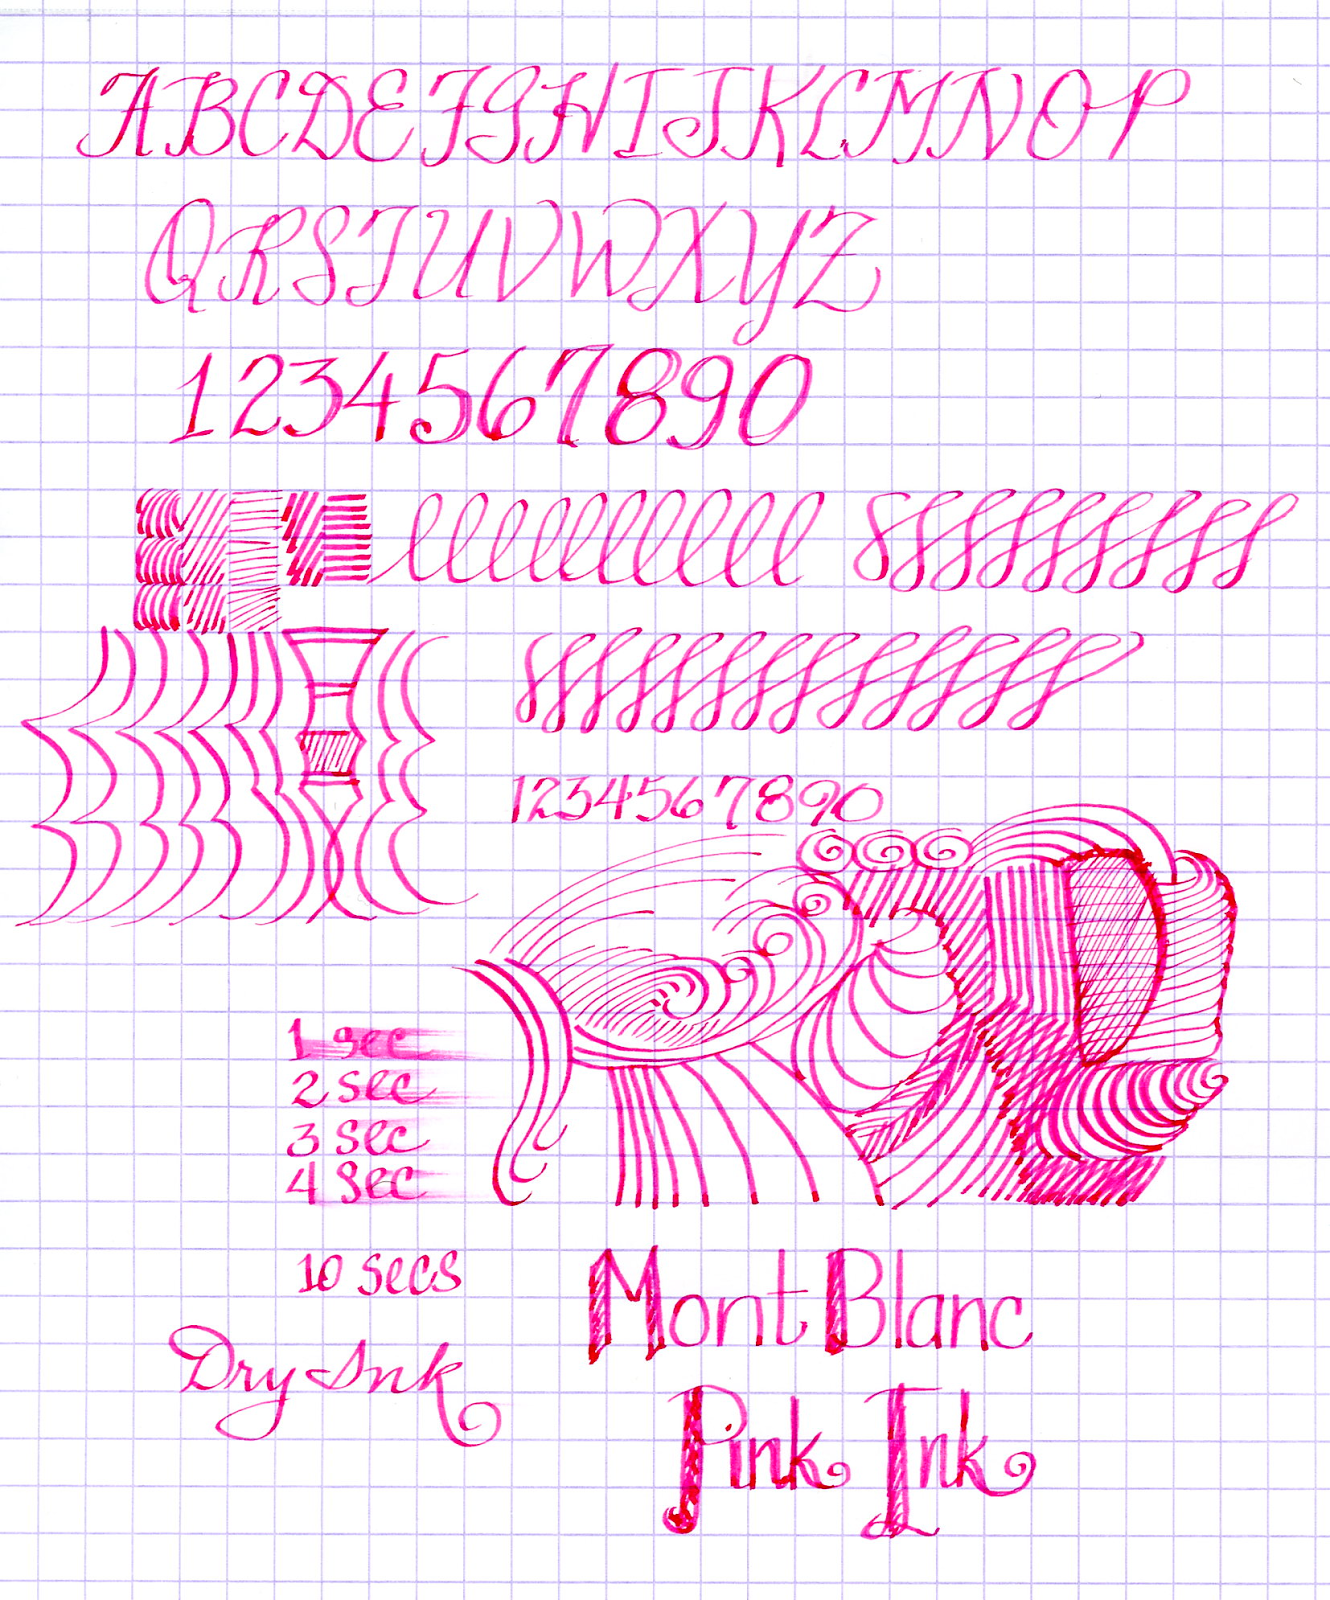 ABCDEFGHIJKLMNOP
QRSTUVWXYZ
1234567890
1234567890
1 sec
2 sec
3 sec
4 sec
10 secs
Mont Blanc
Dry Ink
Pink Ink